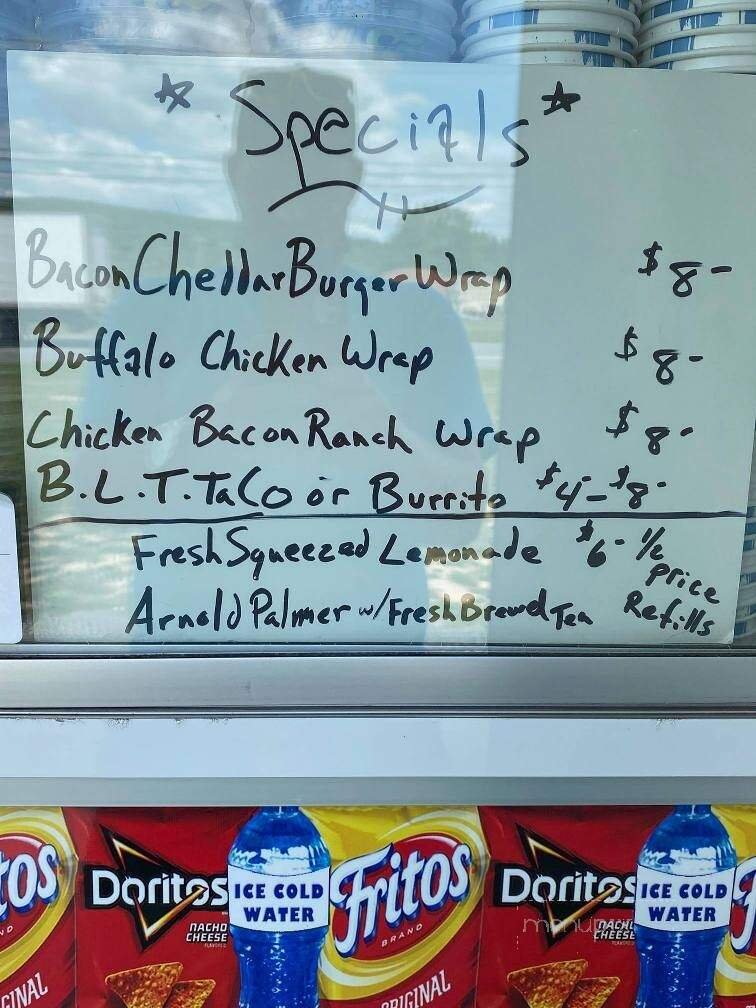 *Specials*
Bacon Cheddar Burger Wrap $8-
Buffalo Chicken Wrap $8-
Chicken Bacon Ranch Wrap $8-
B.L.T. Taco or Burrito $4-$8-
Fresh Squeezed Lemonade $6- 1/2 Price
Arnold Palmer w/Fresh Brewed Tea Refills
tos Doritos ICE COLD WATER Fritos Doritos ICE COLD WATER
NACHO CHEESE BRAND NACHO CHEESE
ORIGINAL